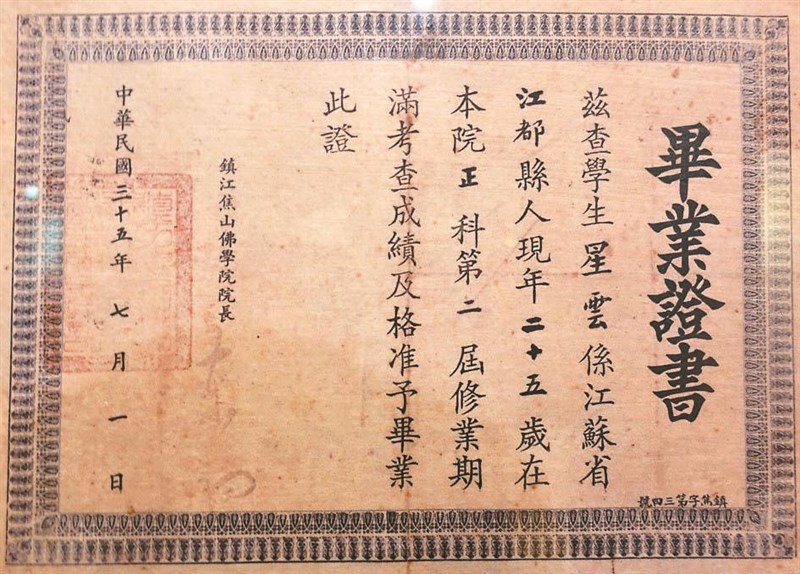 畢業證書
茲查學生星雲係江蘇省
江都縣人現年二十五歲在
本院正科第二屆修業期
滿考查成績及格准予畢業
此證
鎮江焦山佛學院院長
中華民國三十五年七月一日
鎮焦字第三四號